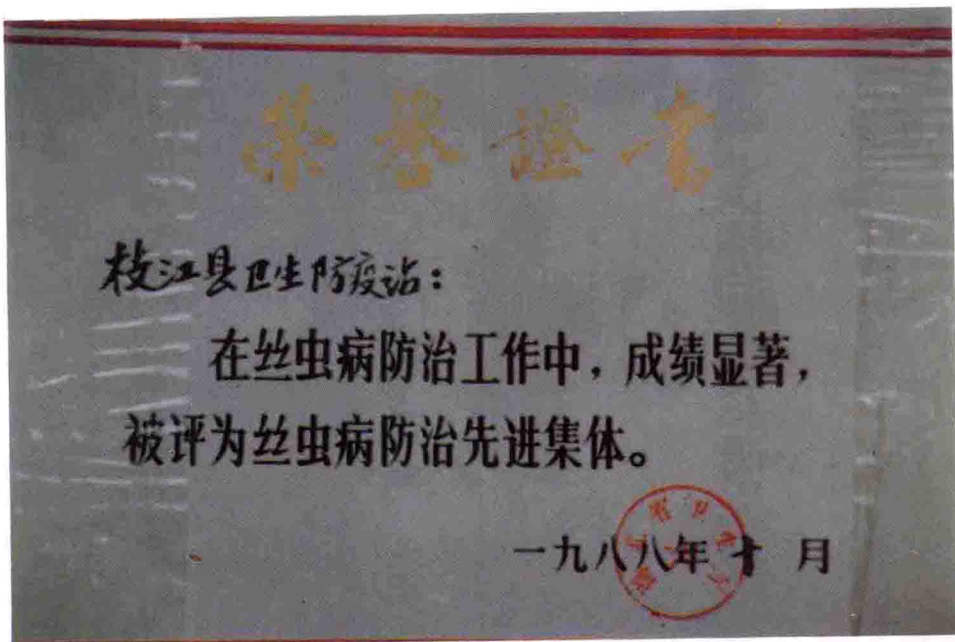 荣誉证书
枝江县卫生防疫站：
在丝虫病防治工作中，成绩显著，
被评为丝虫病防治先进集体。
一九八八年十月